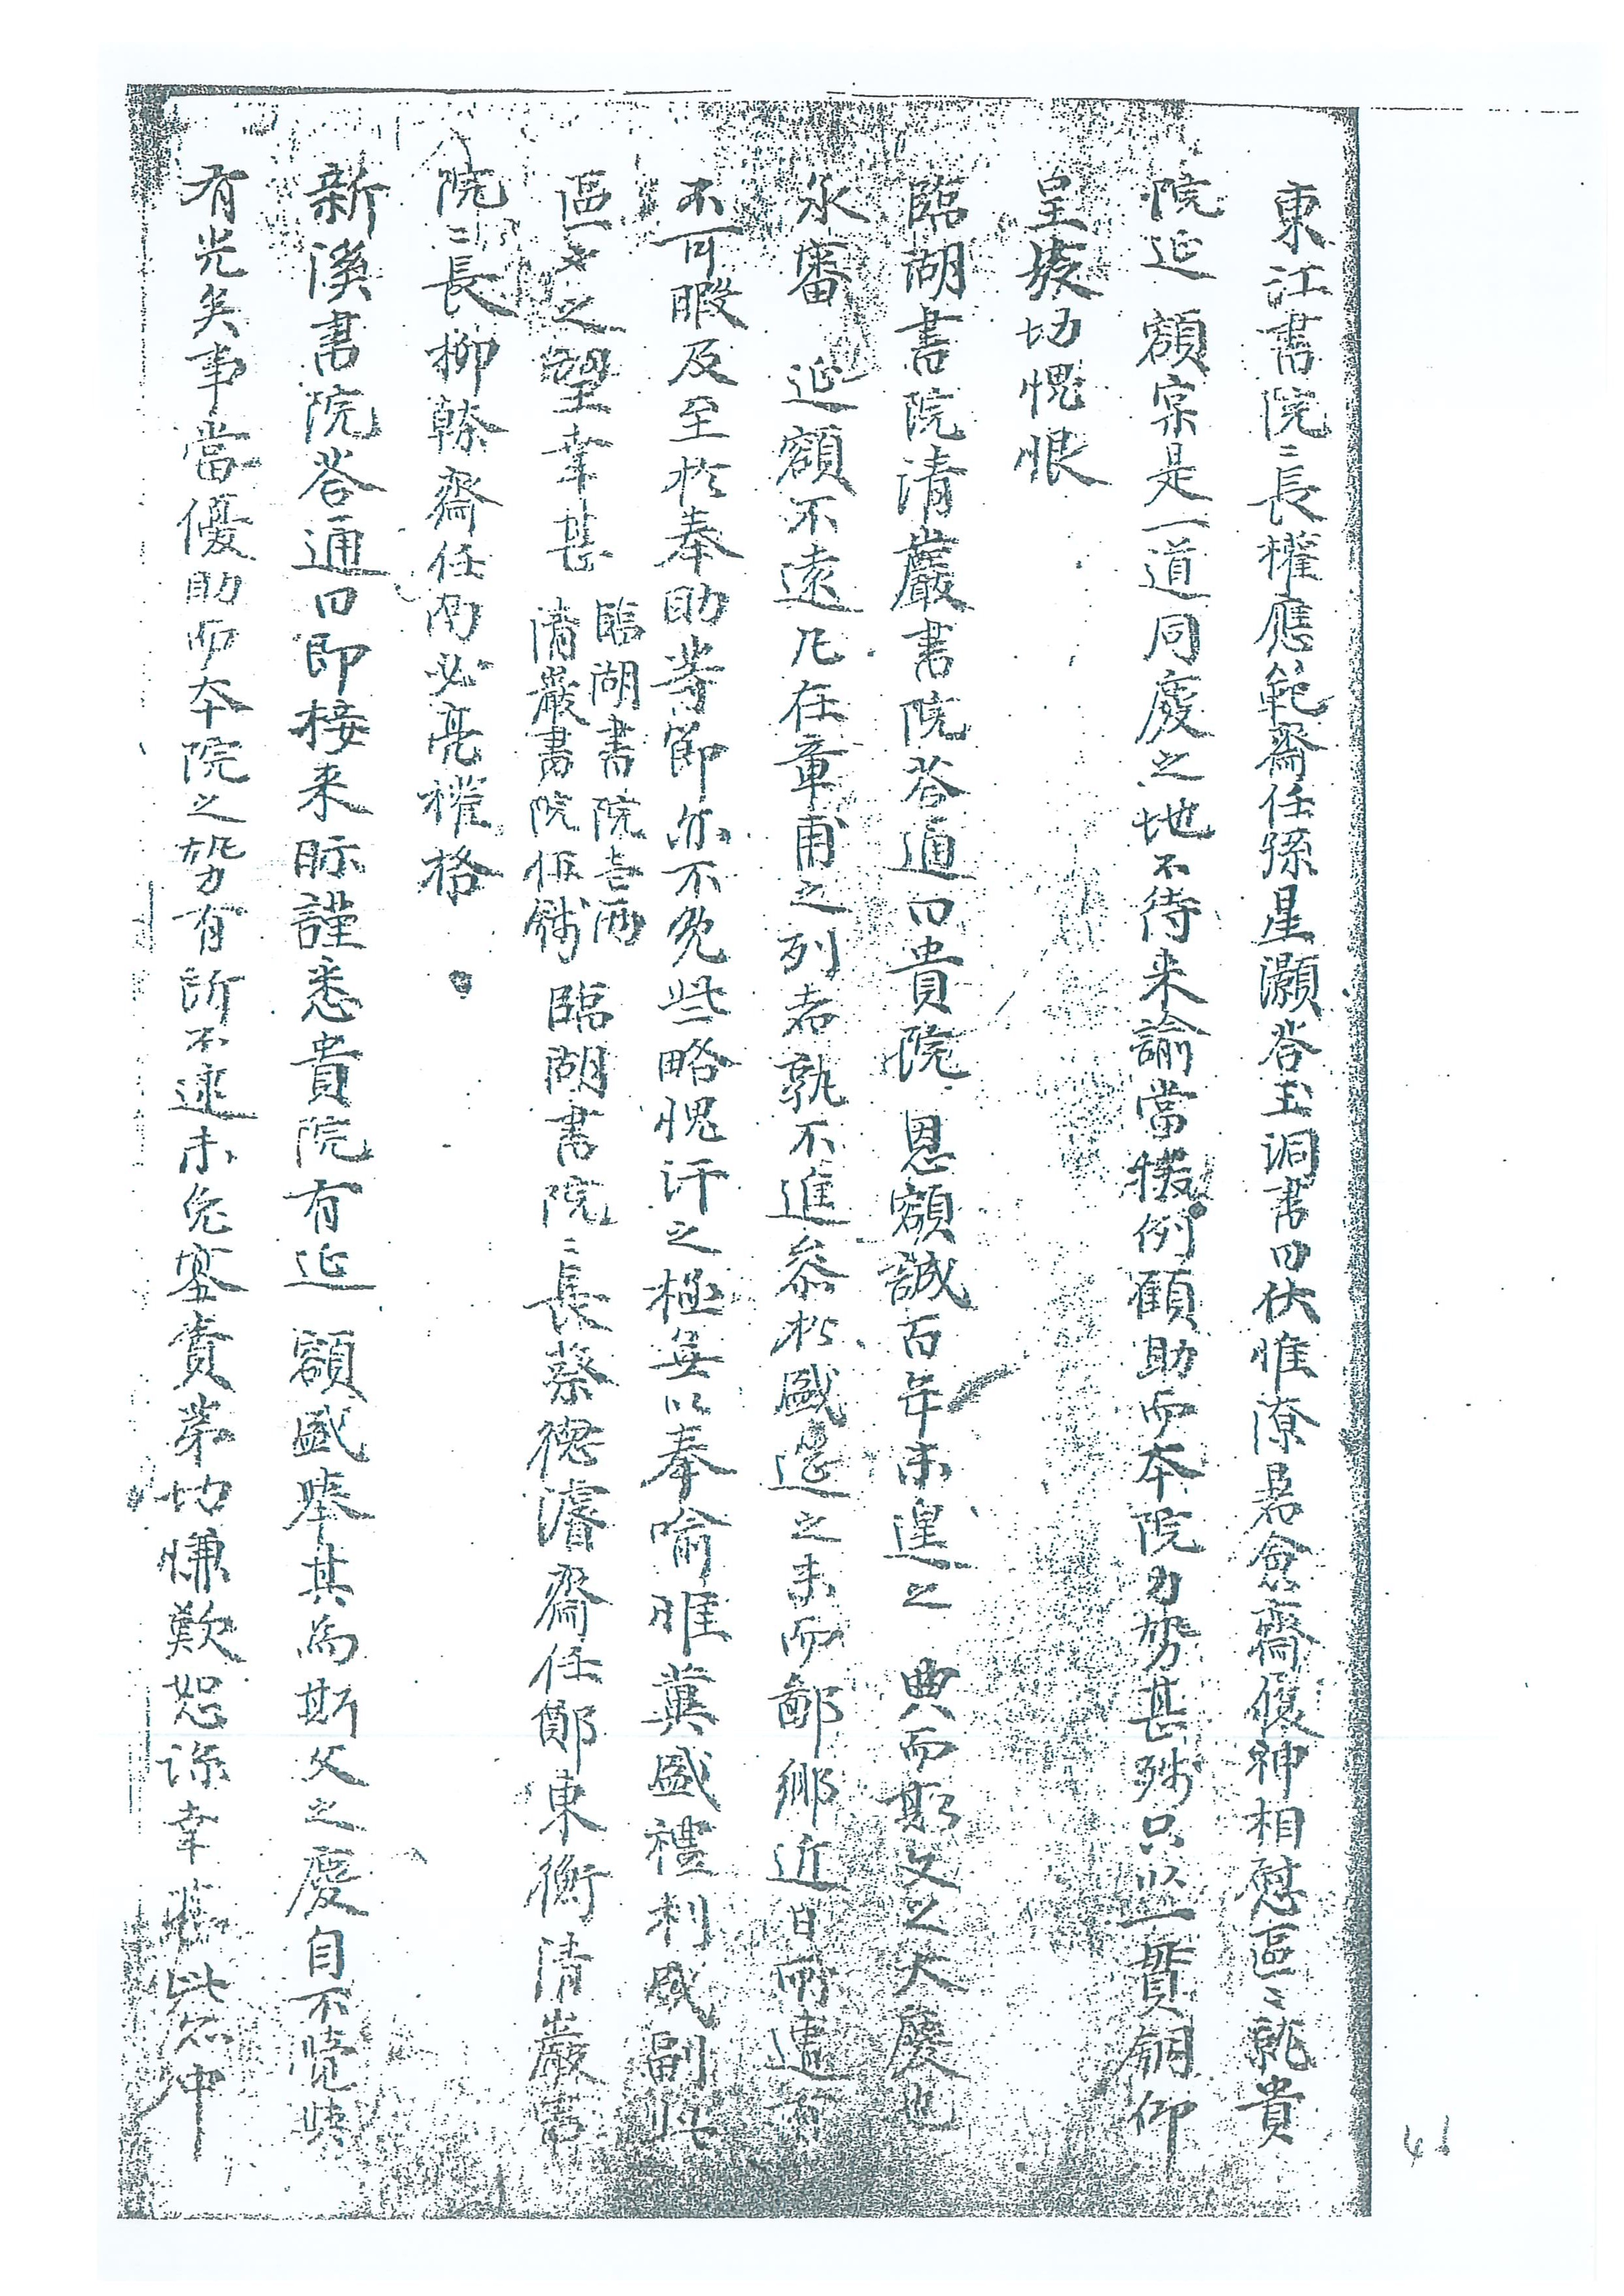 東江書院〻長權應範齋任孫星灝答玉洞書曰伏惟潦暑僉齋候神相慰區〻就貴
院延 額宲是一道同慶之地不待来諭當援例顧助而本院力勢甚殘只以一貫銅仰
呈歎切愧恨
臨湖書院清巖書院答通曰貴院 恩額誠百年未遑之 典而斯文之大慶也
永審 延額不遠凡在章甫之列者孰不進參於盛筵之末而鄙鄉近日所遭有
不可暇及至於奉助等節亦不免些略愧汗之極無以奉喻唯冀盛禮利成副此
區〻之望幸甚 臨湖書院壹兩
清巖書院伍錢 臨湖書院〻長蔡德濬齋任鄭東衡清巖書
院〻長柳榦齋任南必亮權格
新溪書院答通曰即接来眎謹悉貴院有延 額盛擧其為斯文之慶自不覺
有光矣事當優助而本院之勢有所不逮未免塞責第切慊歎恕諒幸 此右中
46